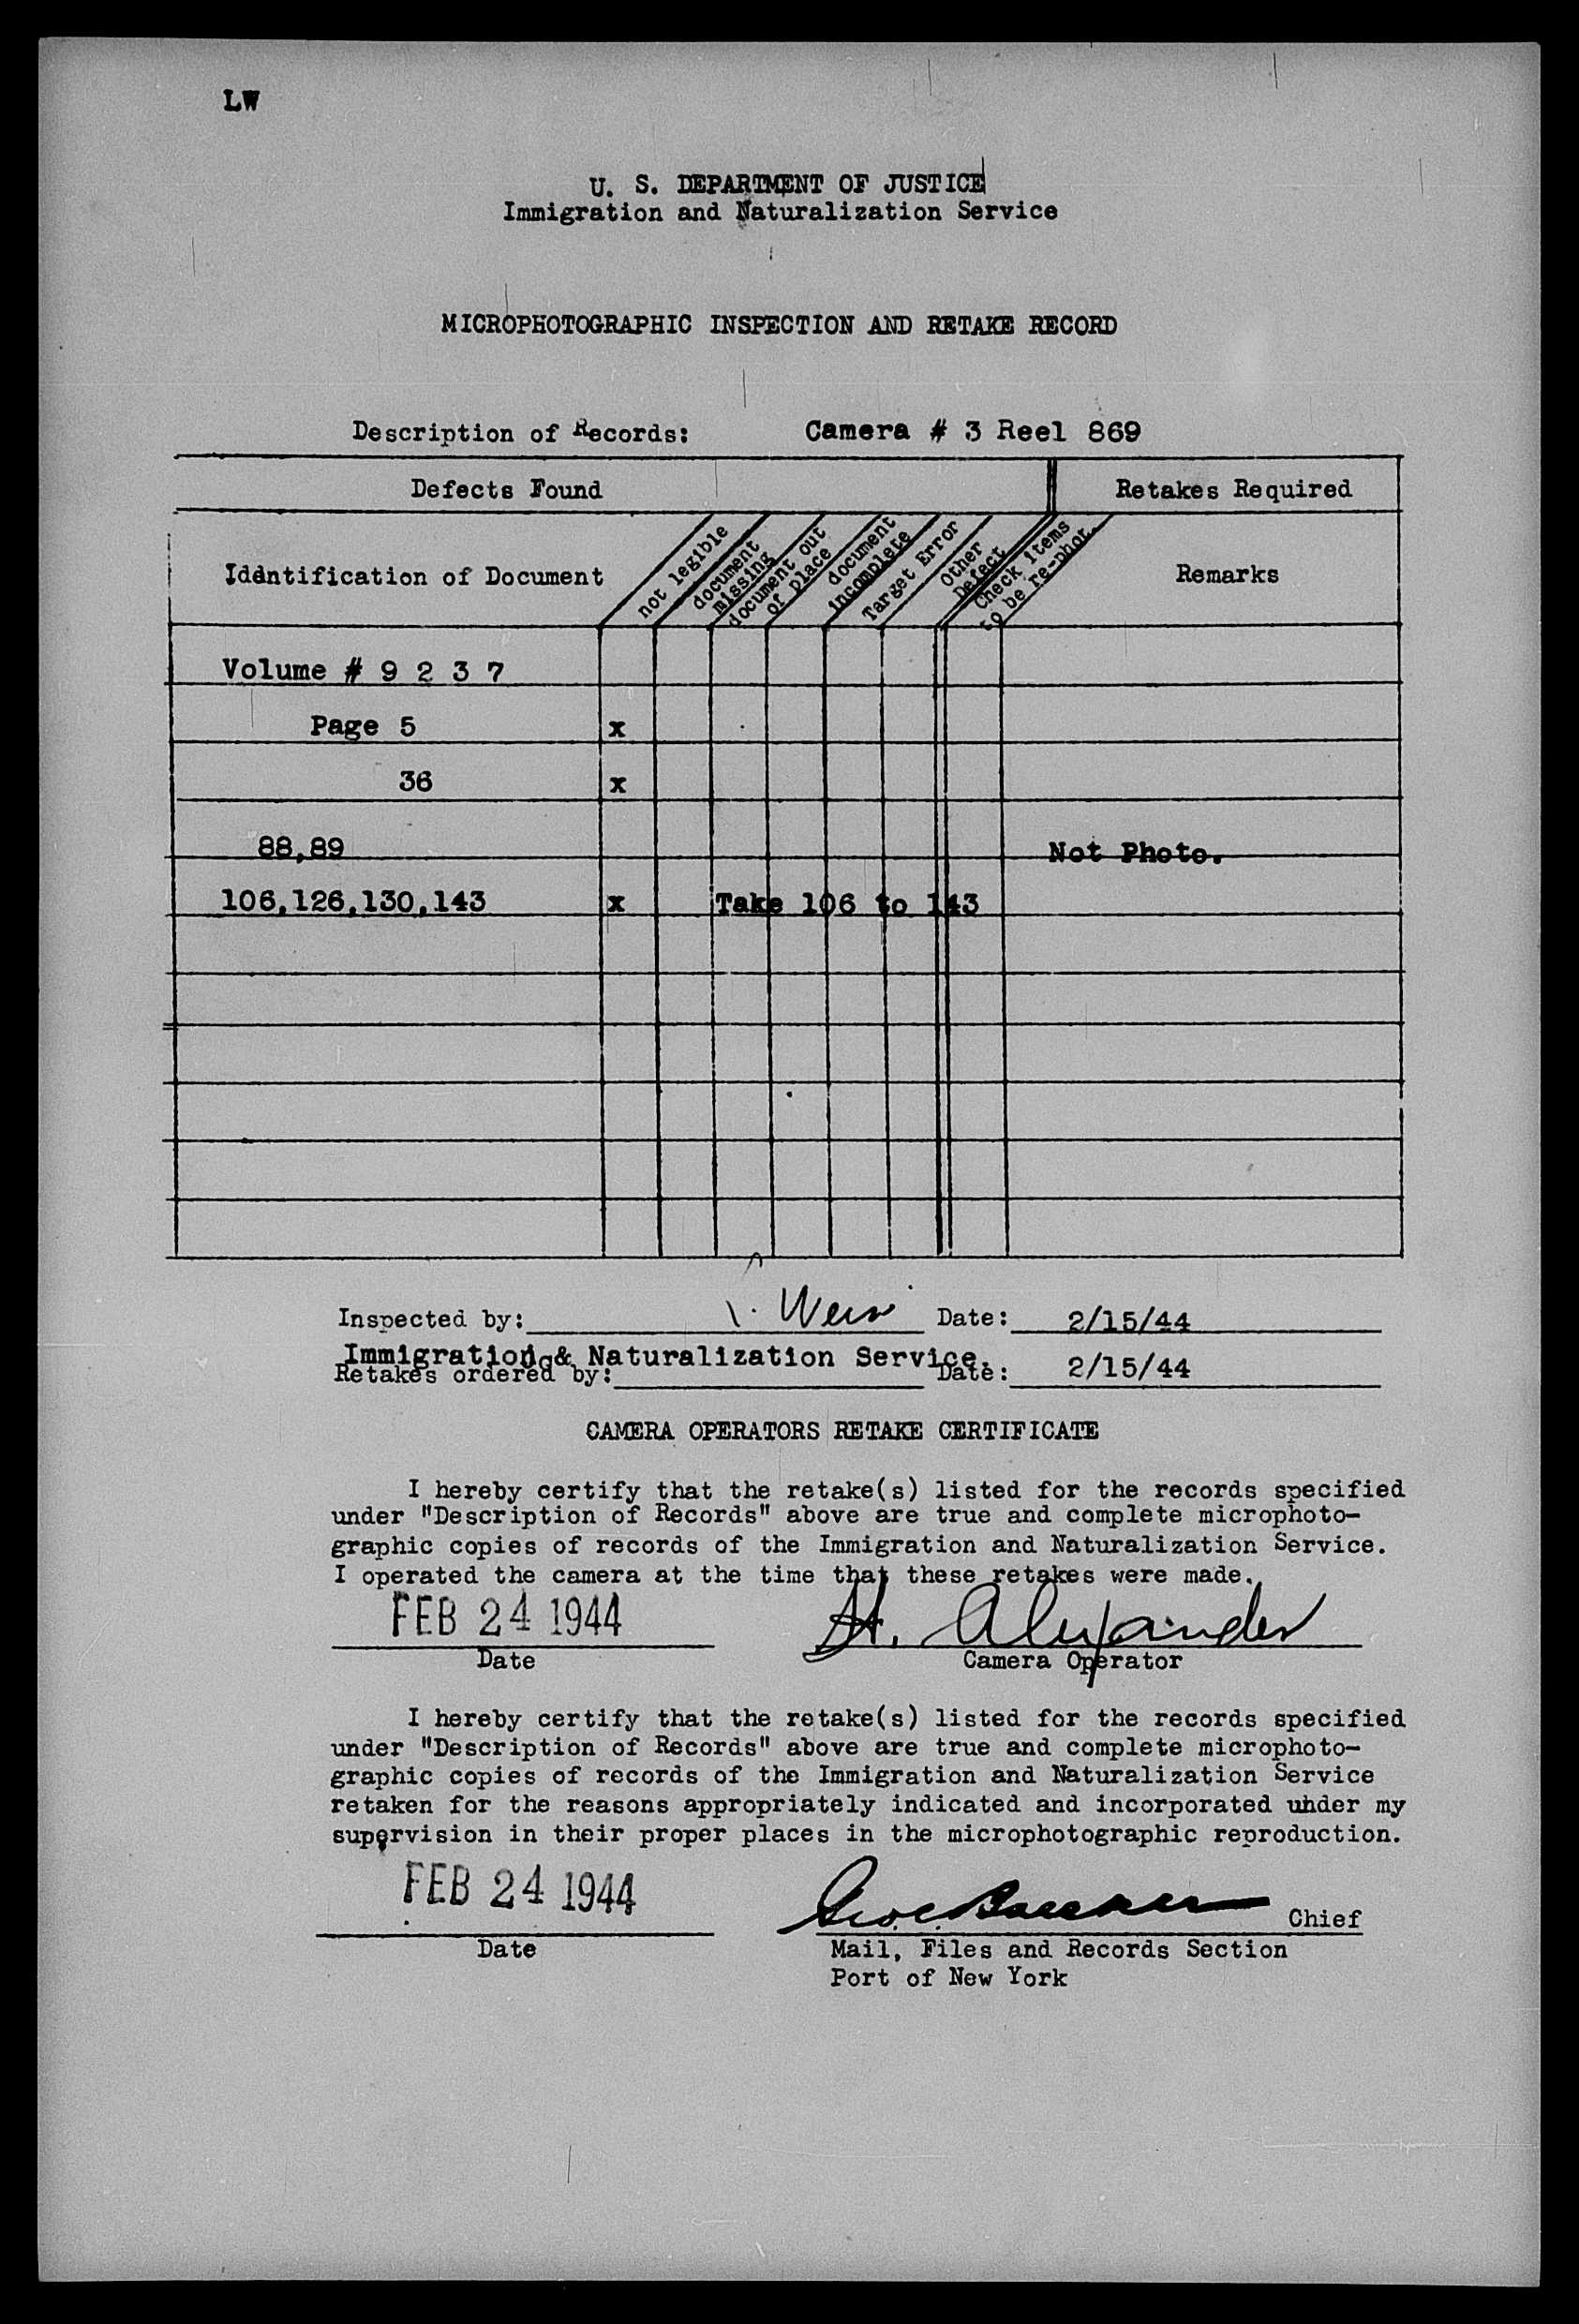 LW
U. S. DEPARTMENT OF JUSTICE
Immigration and Naturalization Service
MICROPHOTOGRAPHIC INSPECTION AND RETAKE RECORD
Description of Records: Camera # 3 Reel 869
Defects Found Retakes Required
Identification of Document
not legible
document missing
document out of place
document incomplete
Target Error
Other Defect
Check items to be re-phot.
Remarks
Volume # 9 2 3 7
Page 5 x
36 x
88,89 Not Photo.
106,126,130,143 x Take 106 to 143
Inspected by: Date: 2/15/44
Immigration & Naturalization Service.
Retakes ordered by: Date: 2/15/44
CAMERA OPERATORS RETAKE CERTIFICATE
I hereby certify that the retake(s) listed for the records specified
under "Description of Records" above are true and complete microphoto-
graphic copies of records of the Immigration and Naturalization Service.
I operated the camera at the time that these retakes were made.
FEB 24 1944 H. Alexander
Date Camera Operator
I hereby certify that the retake(s) listed for the records specified
under "Description of Records" above are true and complete microphoto-
graphic copies of records of the Immigration and Naturalization Service
retaken for the reasons appropriately indicated and incorporated under my
supervision in their proper places in the microphotographic reproduction.
FEB 24 1944 Chief
Date Mail, Files and Records Section
Port of New York